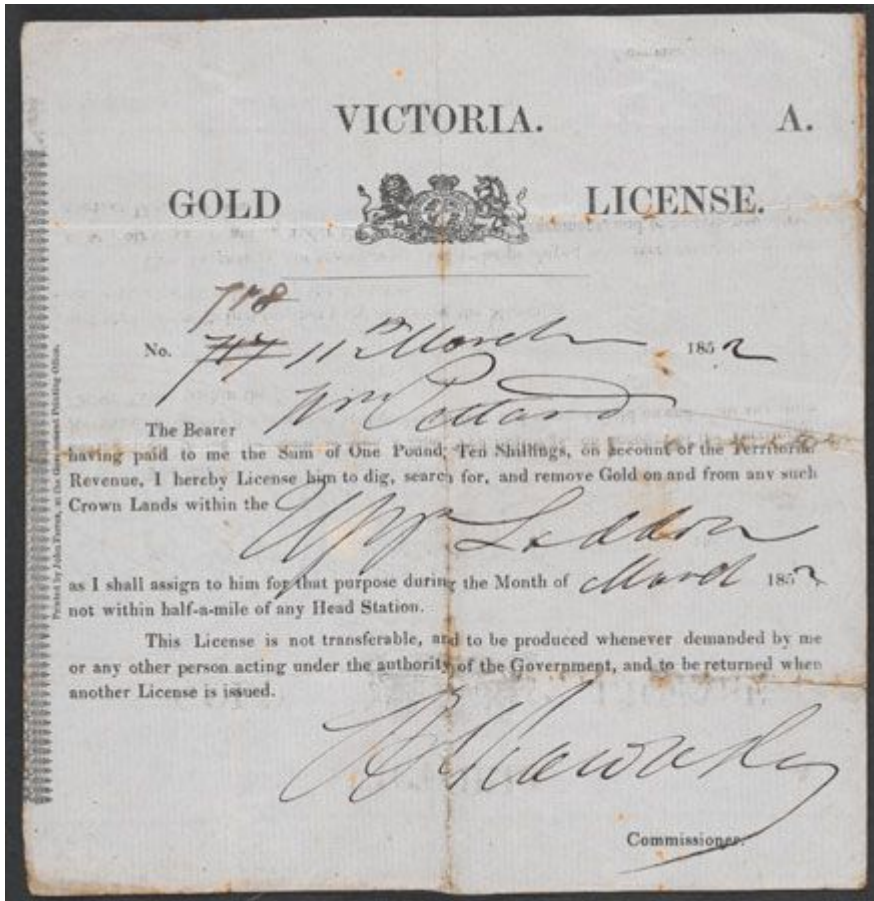 VICTORIA. A.
GOLD LICENSE.
No. 11th March 1852
Wm
The Bearer
having paid to me the Sum of One Pound, Ten Shillings, on account of the Territorial
Revenue, I hereby License him to dig, search for, and remove Gold on and from any such
Crown Lands within the
Uppr Loddon
as I shall assign to him for that purpose during the Month of March 1852
not within half-a-mile of any Head Station.
This License is not transferable, and to be produced whenever demanded by me
or any other person acting under the authority of the Government, and to be returned when
another License is issued.
Commissioner.
Printed by John Ferres, at the Government Printing Office.